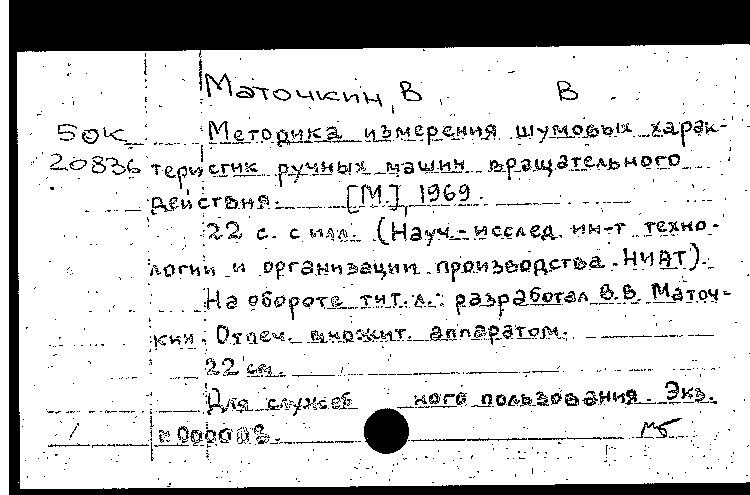 Маточкин, В В
50К Методика измерения шумовых харак-
20836 теристик ручных машин вращательного
действия. [М.], 1969.
22 с. с илл. (Науч.-исслед. ин-т техно-
логии и организации производства. НИАТ).
На обороте тит. л.: разработал В.В. Маточ-
кин. Отпеч. множит. аппаратом.
22 см.
Для служеб ного пользования. Экз.